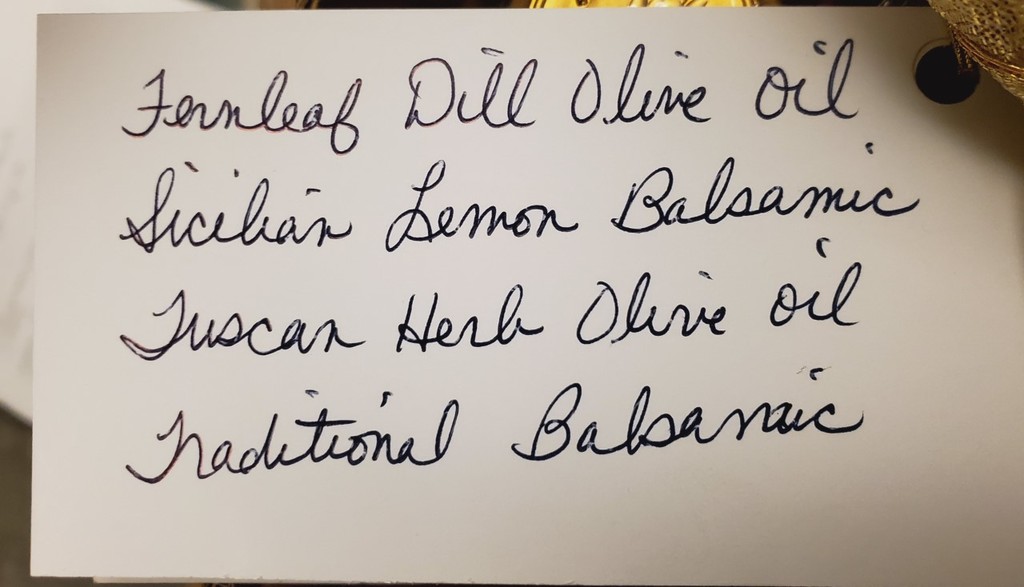 Fernleaf Dill Olive Oil
Sicilian Lemon Balsamic
Tuscan Herb Olive Oil
Traditional Balsamic